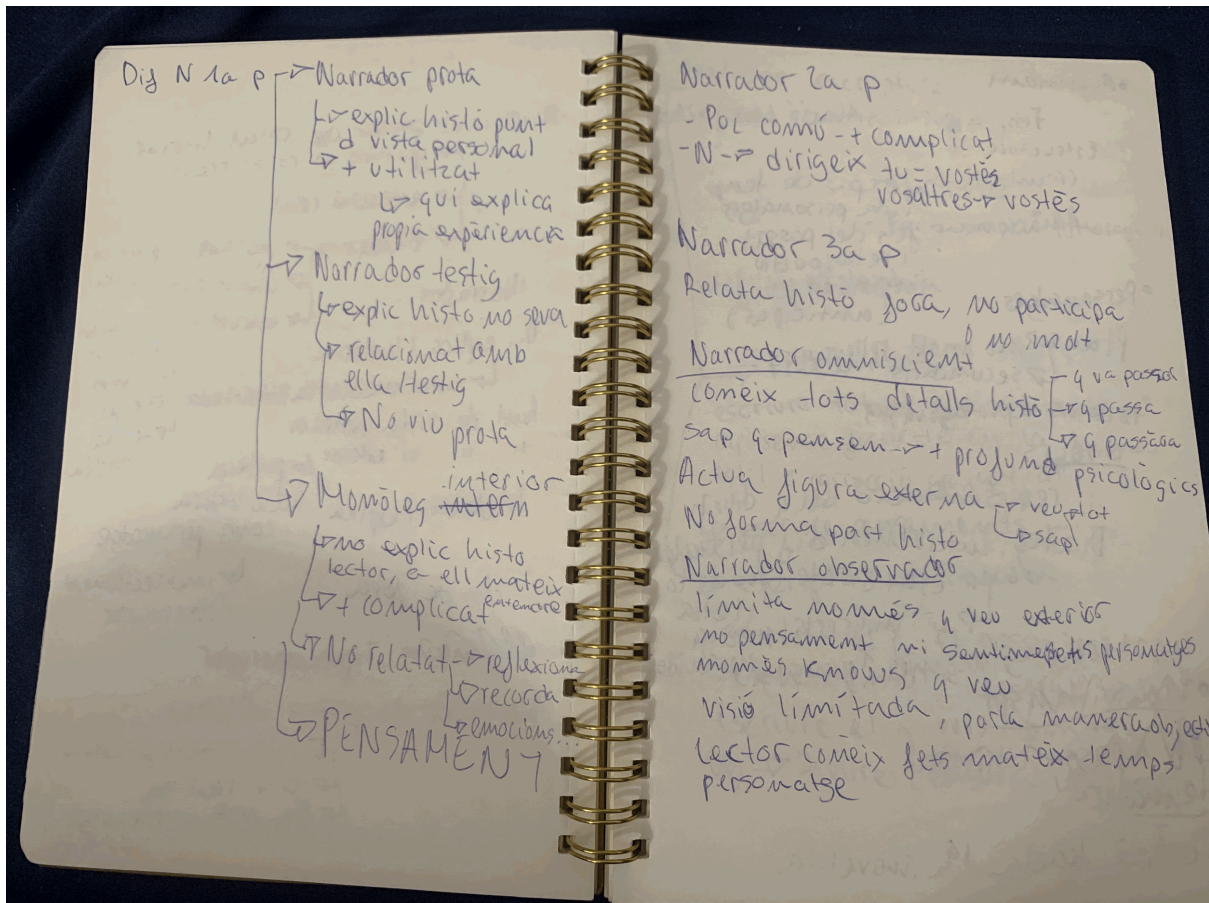 Dif N 1a p
Narrador prota
explic histò punt
d vista personal
+ utilitzat
qui explica
propia expèriencia
Narrador testig
explic histo no seva
relacionat amb
ella/testig
No viu prota
Monòleg interior
no explic histo
lector, a ell mateix
+ complicat entendre
No relatat → reflexiona
recorda
emocions...
PENSAMENT
Narrador 2a p
- Poc comú - + complicat
- N → dirigeix tu = vostès
vosaltres → vostès
Narrador 3a p
Relata histò fora, no participa
o no molt
Narrador omniscient
conèix tots detalls histò
q va passar
q passa
q passàra
sap q pensen → + profund psicològics
Actua figura externa
veu tot
sap
No forma part histo
Narrador observador
límita nomès q veu exterior
no pensament ni sentiments personatges
nomès knows q veu
visió límitada, parla manera objecti
Lector conèix fets matèix temps
personatge